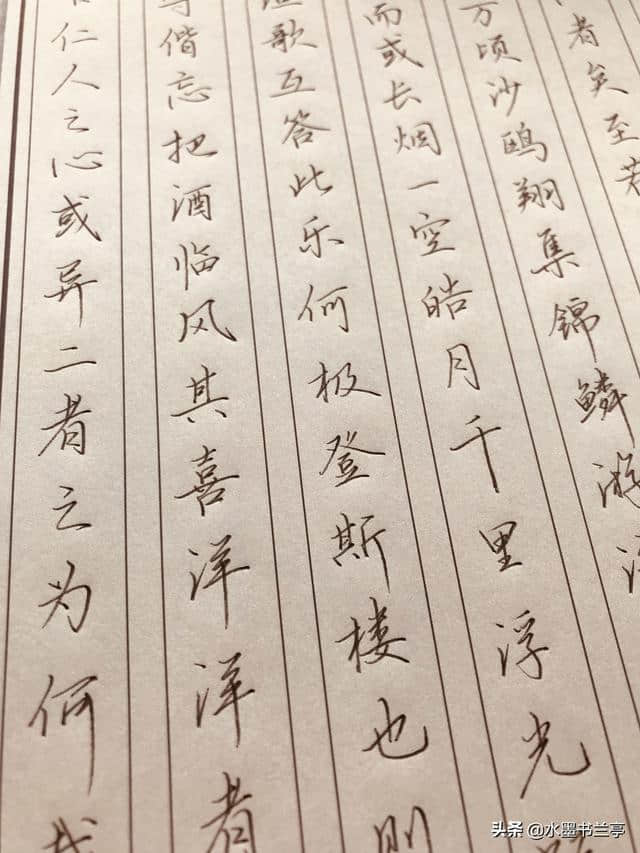 者矣至若
万顷沙鸥翔集锦鳞游
而或长烟一空皓月千里浮光
歌互答此乐何极登斯楼也则
偕忘把酒临风其喜洋洋者
仁人之心或异二者之为何哉
头条 @水墨书兰亭